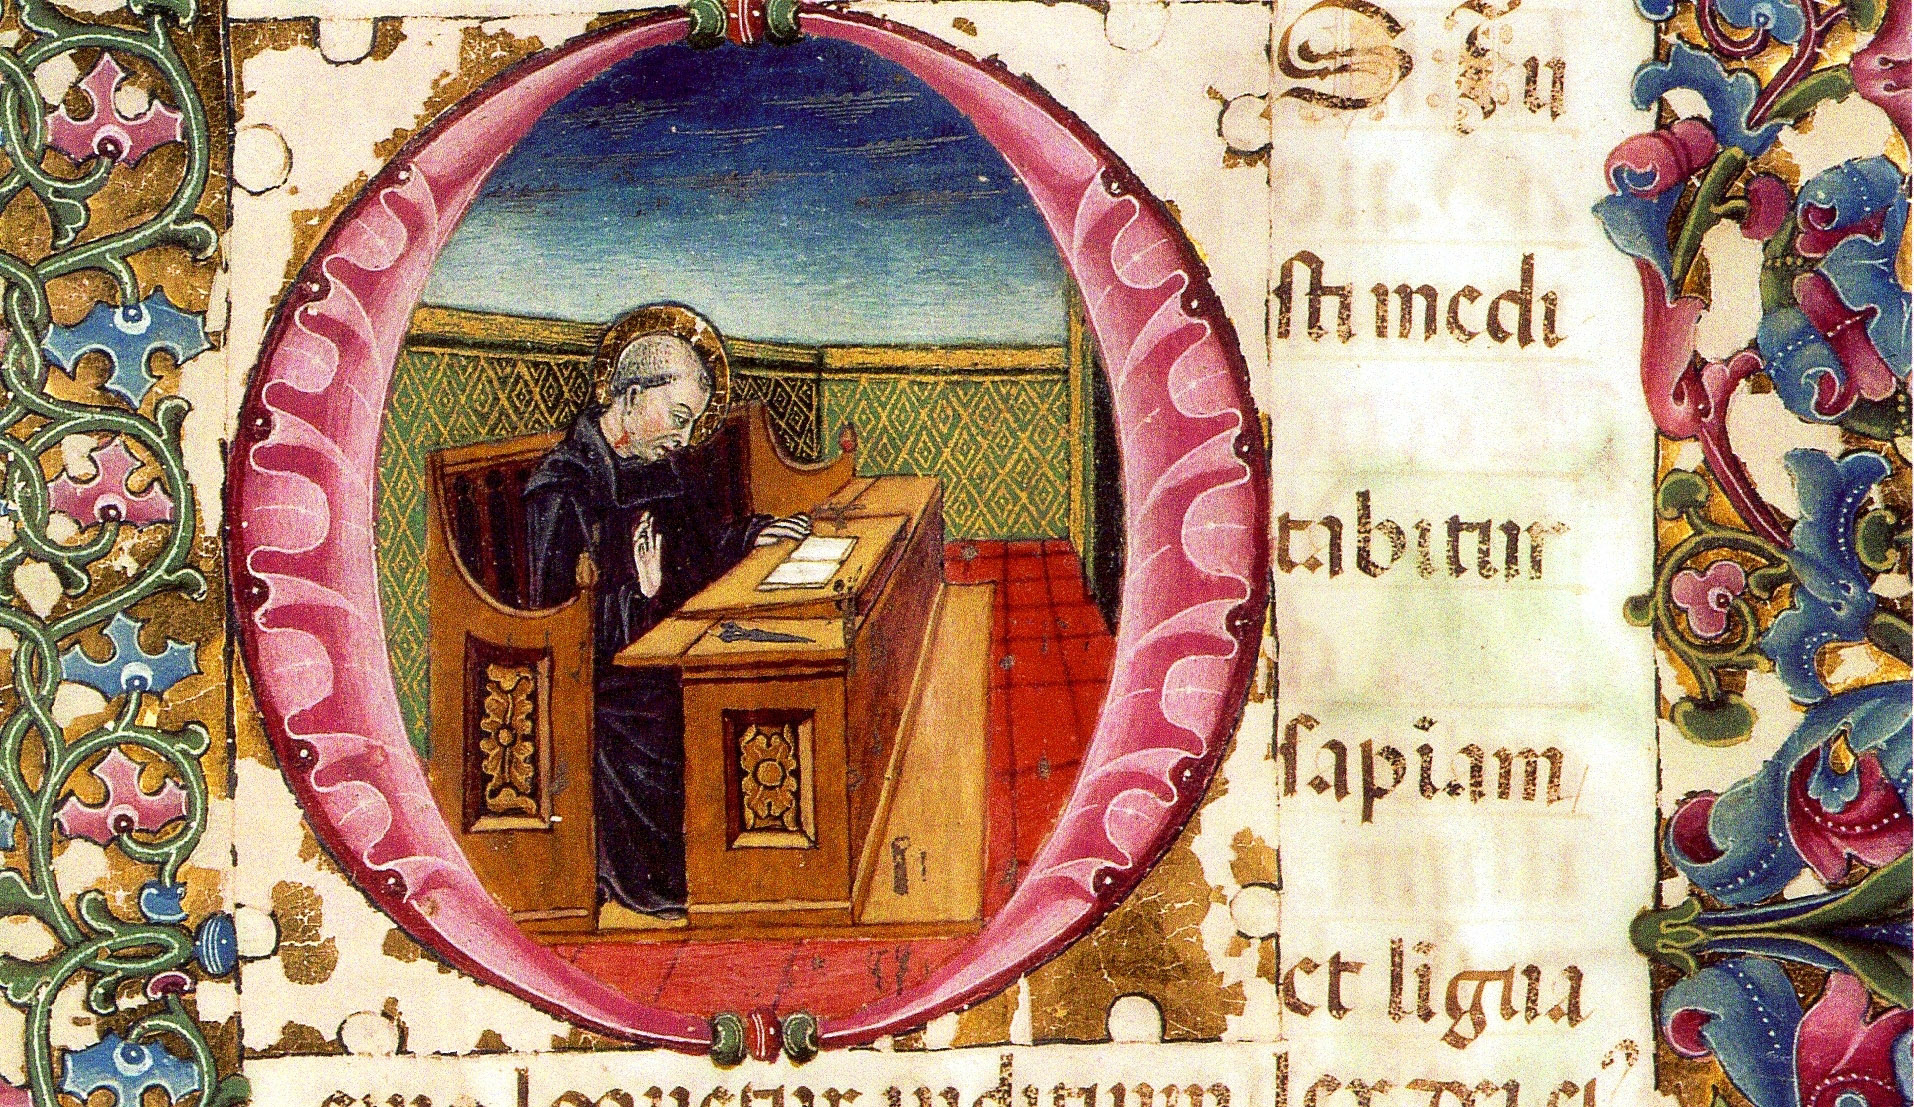 OS Iu
sti medi
tabitur
sapiam
et ligua
eius loquetur iuditium lex dei ei